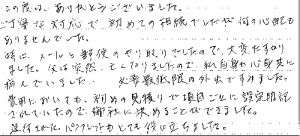 この度は、ありがとうございました。
ご丁寧な対応で、初めての相続でしたが何の心配も
ありませんでした。
特に、メールと郵便のやり取りでしたので、大変助かり
ました。父は突然、亡くなりましたので、私自身も心身共に
病んでいました。必要最低限の外出ですみました。
費用においても、初めの見積りで項目ごとに確定明記
されていたので、御社に決めることができました。
送付された、パンフレットもとても役に立ちました。